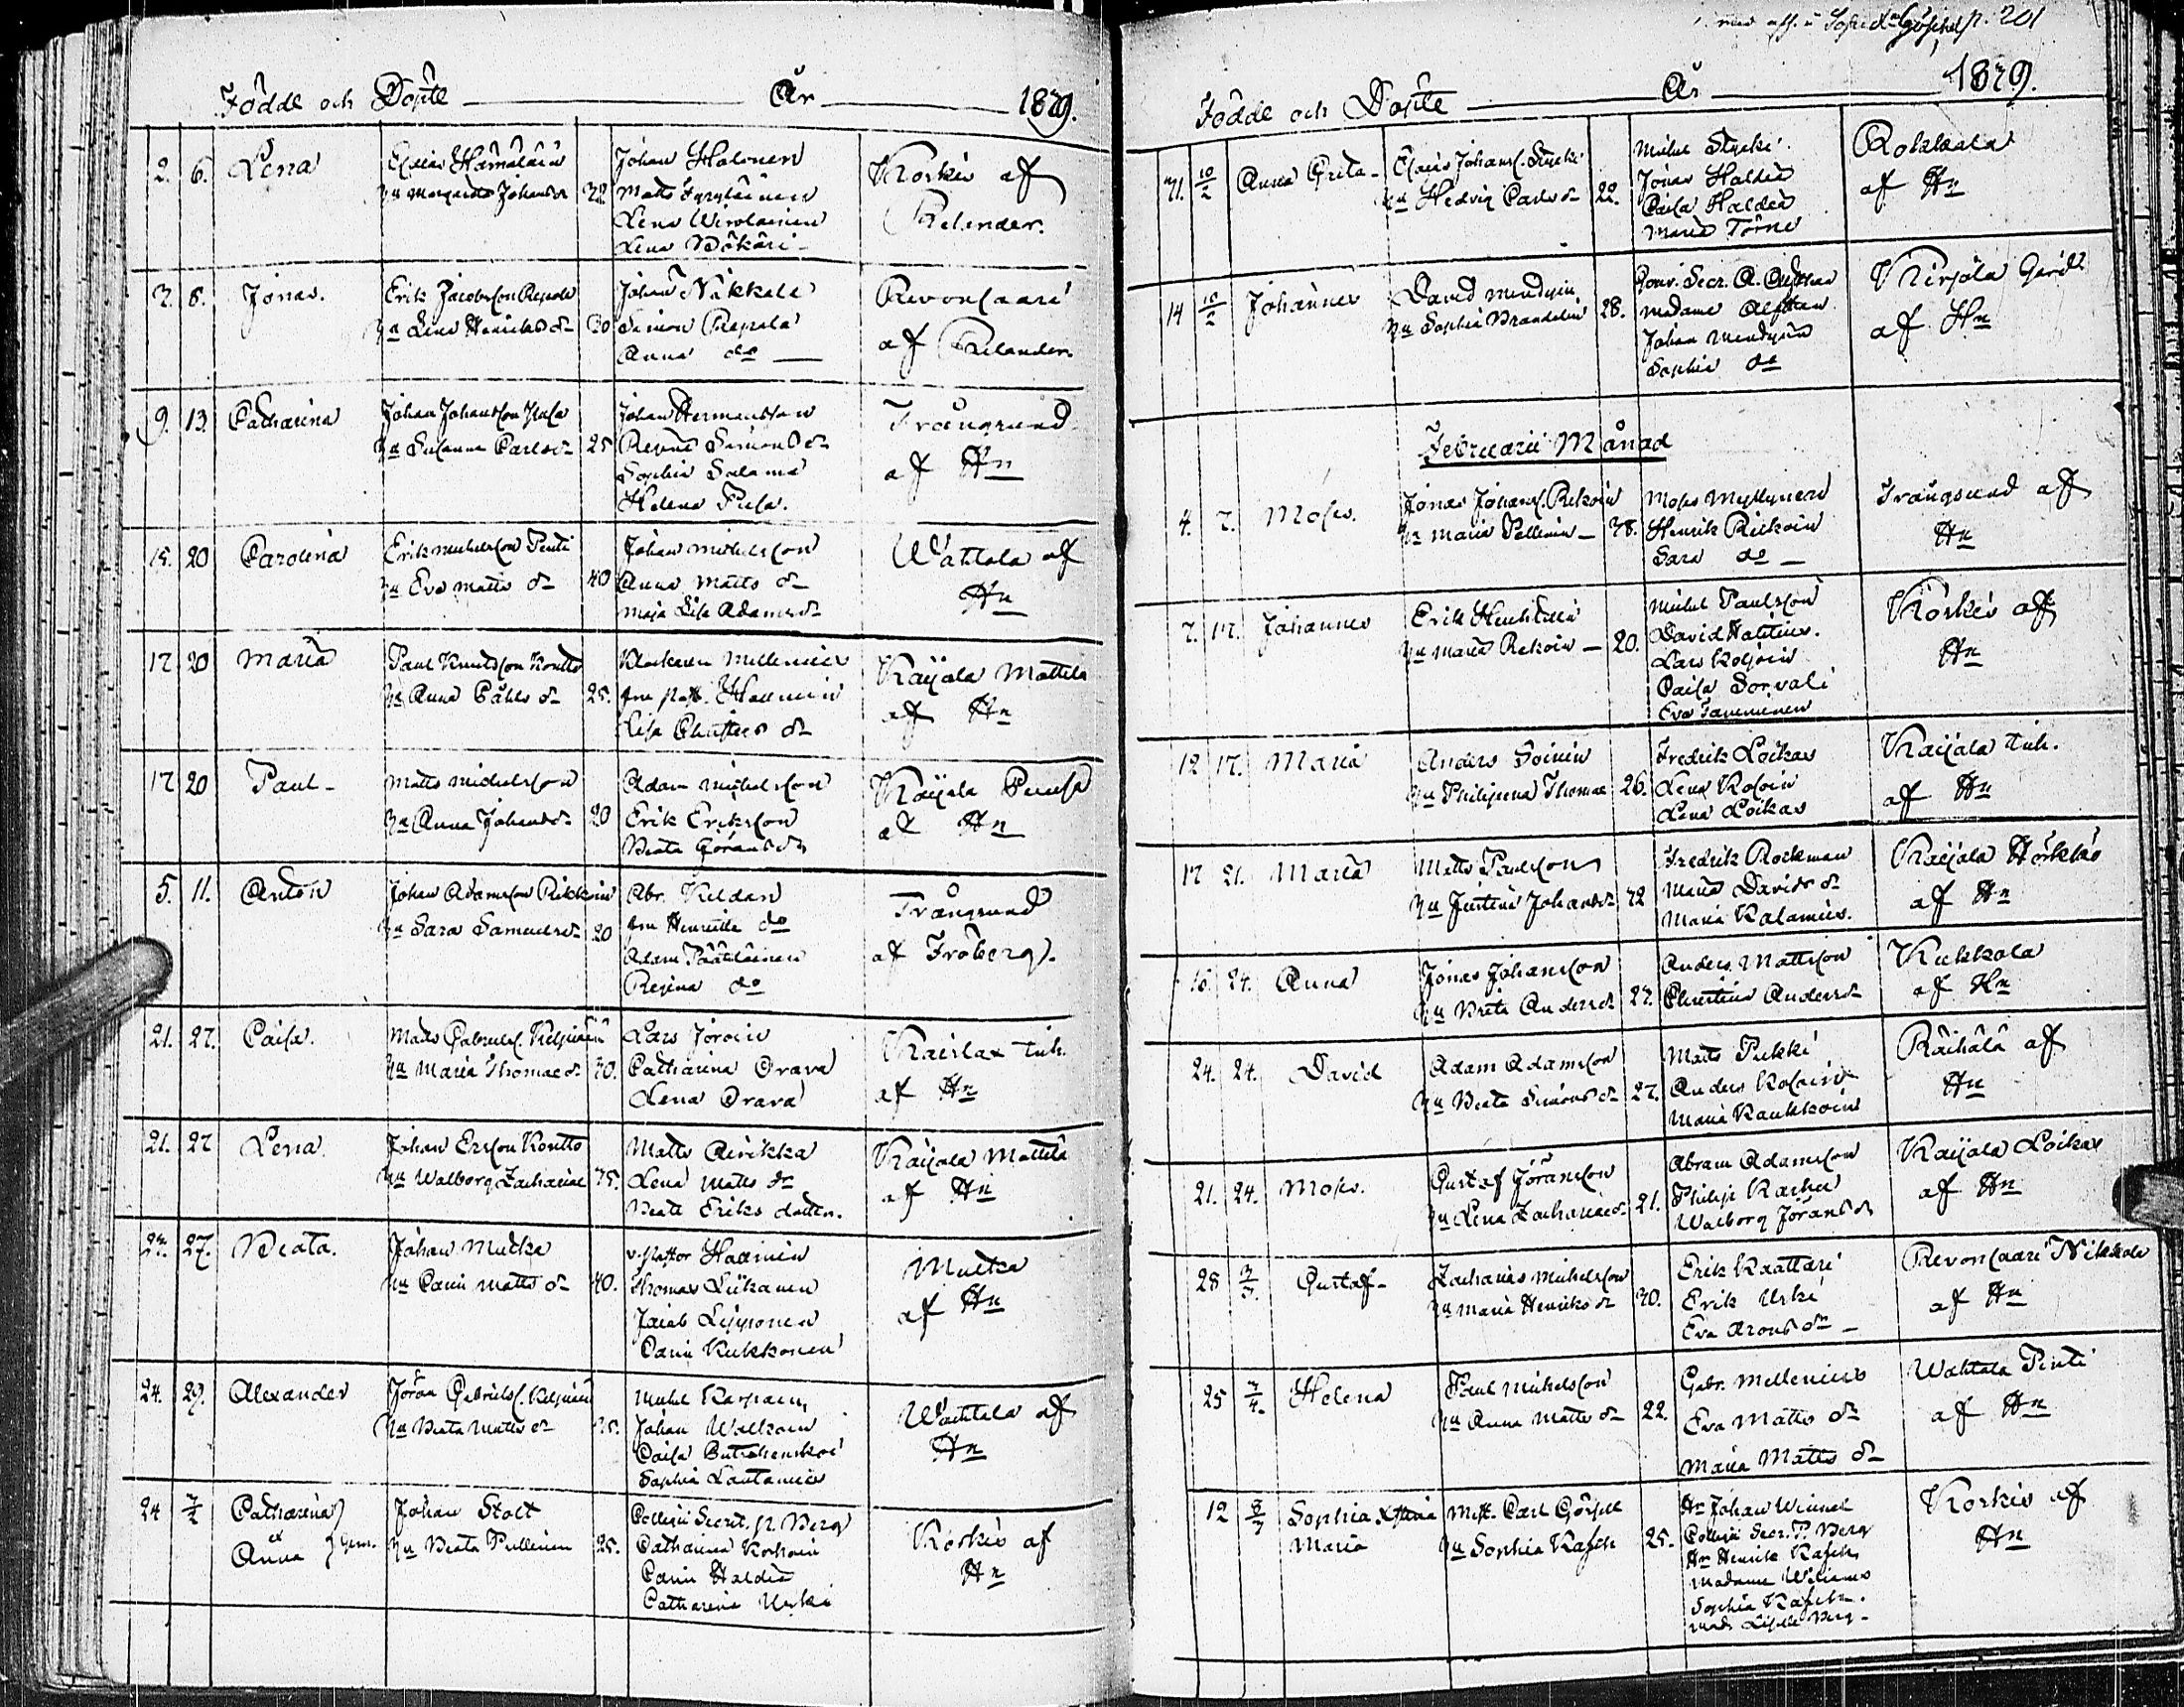 Födde och Döpte År 1829.
2. 6. Lena
Elias Hämäläin
hu Margareta Johansdr 32
Johan Halonen
Matts
Lena Wirolainen
Lena Wäkäri
Korkis af
Relander.
3. 8. Jonas.
Erik Jacobsson Repola
hu Lena Henricksdr 30
Johan Näkkele
Simon Repola
Anna do
Revonsaari
af Relander.
9. 13. Catharina
Johan Johansson
hu Susanna Carlsdr 25
Johan Hermansson
Regina Simonsdr
Sophia Salama
Helena
Trångsund
af Hn
15. 20 Carolina
Erik Michelsson Penti
hu Eva Mattsdr 40
Johan Michelsson
Anna Mattsdr
Maja Lisa Adamsdr
Wahtola af
Hn
17 20 Maria
Paul Knutsson Koutto
hu Anna Påhlsdr 25.
Klockaren Mellenius
fru past. Hallmein
Lisa dr
Kaijala Mattila
af Hn
17 20 Paul
Matts Michelsson
hu Anna Johansdr 20
Adam Michelsson
Erik Eriksson
Beata Göransdr
Kaijala
af Hn
5. 11. Anton
Johan Adamsson
hu Sara Samuelsdr 20
Abr. Keldan
fru do
Adam Päätiläinen
Regina do
Trångsund
af Fröberg.
21. 27. Caisa.
Matts Gabriels.
hu Maria Thomaedr 30.
Lars Jöroin
Catharina Orava
Lena Orava
Kaislax
af Hn
21. 27 Lena
Johan Ersson Koutto
hu Walborg Zachariae 35.
Matts Airikka
Lena Mattsdr
Beata Eriks dotter.
Kaijala Mattila
af Hn
27. Beata.
Johan Mutka
hu Carin Mattsdr 40.
v. Pastor Hallmein
Thomas Liikanen
Jacob Lyijynen
Carin Kukkonen
Mutka
af Hn
24. 29. Alexander
Jöran Gabriels.
hu Beata Mattsdr 35.
Michel Karpain
Johan Walkoin
Caisa
Sophia Lautanius
Wahtola af
Hn
24 3/2 Catharina
et
Anna } Gem.
Johan Stolt
hu Beata Pullinen 25.
Collegii Secret. P. Berg
Catharina Korhoin
Carin Haldin
Catharina Urki
Korkis af
Hn
p. 201
Födde och Döpte År 1829.
31. 10/2 Anna Greta
Claes Johans. Stycki
hu Hedvig Carlsdr 22.
Michel Stycki
Jonas Haldin
Caisa Haldin
Maria Törne
Rokkala
af Hn
14 10/2 Johannes
David Mendezin
hu Sophia Brandelin 28.
Gouv. Secr. A. Alfthan
Madame Alfthan
Johan Mendezin
Sophia do
Kirjola Gård
af Hn
Februarii Månad
4. 7. Moses.
Jonas Johans. Rikoin
hu Maria Pellinen 38.
Moses Myllynen
Henrik Rikoin
Sara do
Trångsund af
Hn
7. 17. Johannes
Erik
hu Maria Rekoin 20.
Michel Paulsson
David Halilius.
Lars
Caisa Sorvali
Eva Taveminen
Korkis af
Hn
12 17. Maria
Anders Soinin
hu Philippina Thomae 26.
Fredrik Loikas
Lena Kosoin
Lena Loikas
Kaijala
af Hn
17 21. Maria
Matts Paulsson
hu Justina Johansdr 32
Fredrik Rockman
Maria Davidsdr
Maria Kalamies.
Kaijala Hörkkö
af Hn
16. 24. Anna
Jonas Johansson
hu Brita Andersdr 27.
Anders Mattsson
Christina Andersdr
Kukkola
af Hn
24. 24. David
Adam Adamsson
hu Beata Simonsdr 27.
Matts Pukki
Anders Kosoin
Maria Kaukkoin
Räihälä af
Hn
21. 24. Moses.
Gustaf Jöransson
hu Lena Zachariaedr 21.
Abram Adamsson
Philip Karhu
Walborg Jöransdr
Kaijala Loikas
af Hn
28 3/3. Gustaf
Zacharias Michelsson
hu Maria Henriksdr 30.
Erik Kaattari
Erik Urki
Eva Aronsdr
Revonsaari Nikkola
af Hn
25 3/4. Helena
Paul Michelsson
hu Anna Mattsdr 22.
Gabr. Mellenius
Eva Matts dr
Maria Matts dr
Wahtola Penti
af Hn
12 8/3 Sophia
Maria
Carl Göschel
hu Sophia Rasch 25.
Hr Johan Winnel
Collegii Secr. P. Berg
Hr Henrik Rasch
Madame Williams
Sophia Rasch.
Berg
Korkis af
Hn